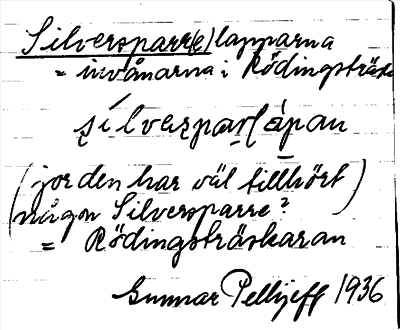 Silversparr(e)lapparna
= invånarna i Rödingsträsk
sílvaṣparḷápan
(jorden har väl tillhört
någon Silversparre?)
= Rödingsträskaran
Gunnar Pellijeff 1936